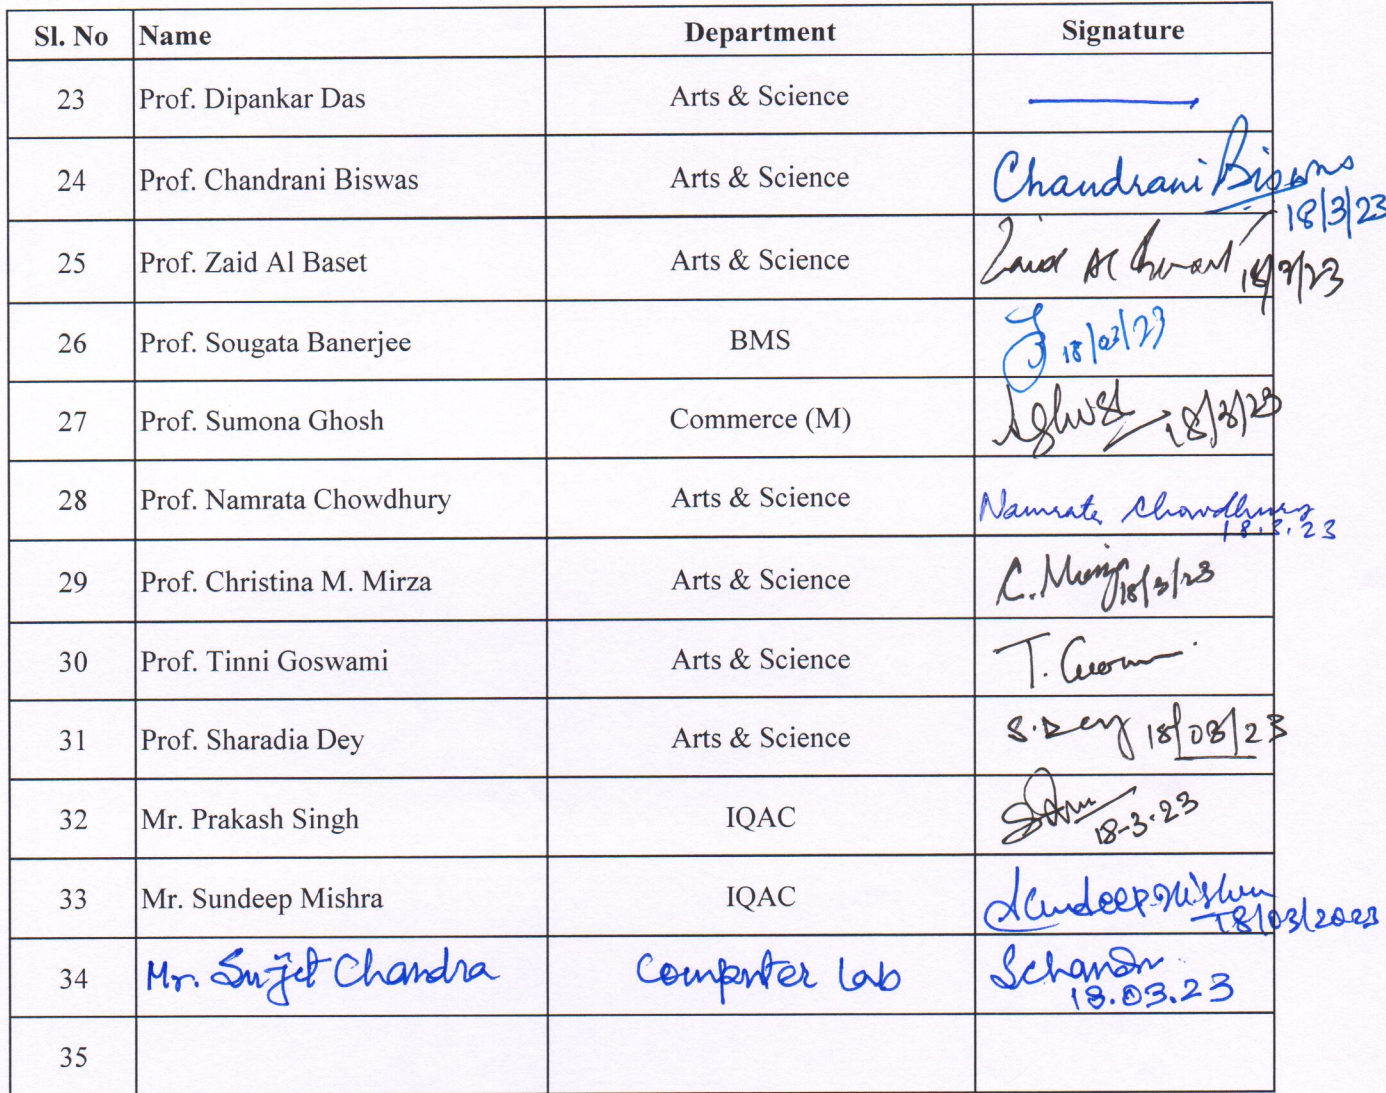 Sl. No Name Department Signature
23 Prof. Dipankar Das Arts & Science
24 Prof. Chandrani Biswas Arts & Science Chandrani Biswas
18/3/23
25 Prof. Zaid Al Baset Arts & Science Zaid Al 18/3/23
26 Prof. Sougata Banerjee BMS 18/03/23
27 Prof. Sumona Ghosh Commerce (M) 18/3/23
28 Prof. Namrata Chowdhury Arts & Science Namrata Chowdhury
18.3.23
29 Prof. Christina M. Mirza Arts & Science C. Mirza 18/3/23
30 Prof. Tinni Goswami Arts & Science T.
31 Prof. Sharadia Dey Arts & Science S. Dey 18/03/23
32 Mr. Prakash Singh IQAC
18-3-23
33 Mr. Sundeep Mishra IQAC Sundeep Mishra
18/03/2023
34 Mr. Sujit Chandra Computer Lab SChandra
18.03.23
35